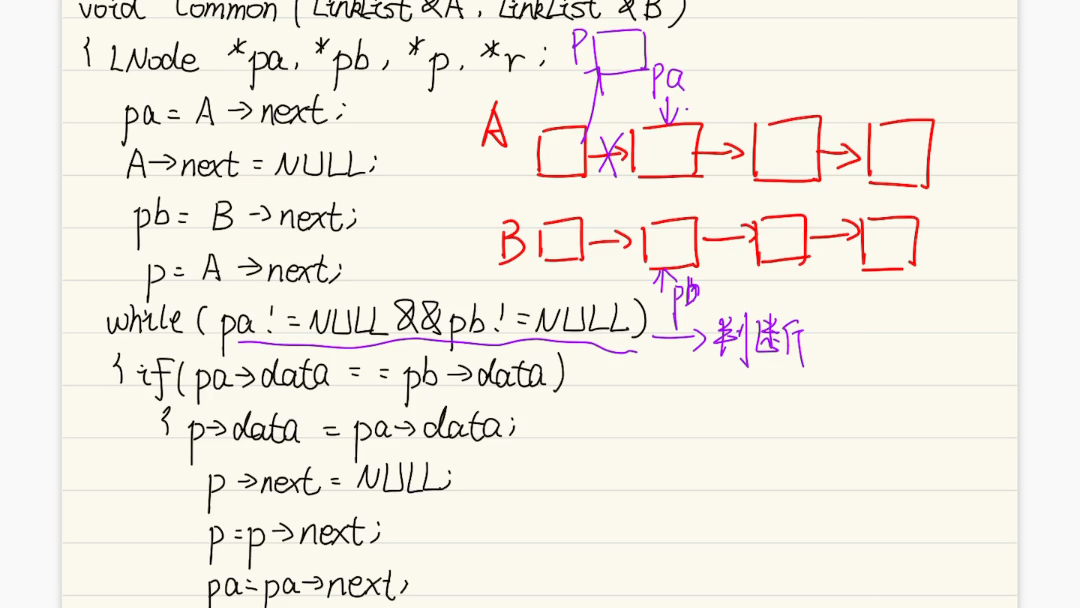 void Common (LinkList &A, LinkList &B)
{ LNode *pa, *pb, *p, *r;
pa = A ->next;
A->next = NULL;
pb = B ->next;
p = A ->next;
while ( pa != NULL && pb != NULL )
{ if( pa->data == pb->data )
{ p->data = pa->data;
p ->next = NULL;
p = p->next;
pa = pa->next;
P
pa
A
B
pb
判断